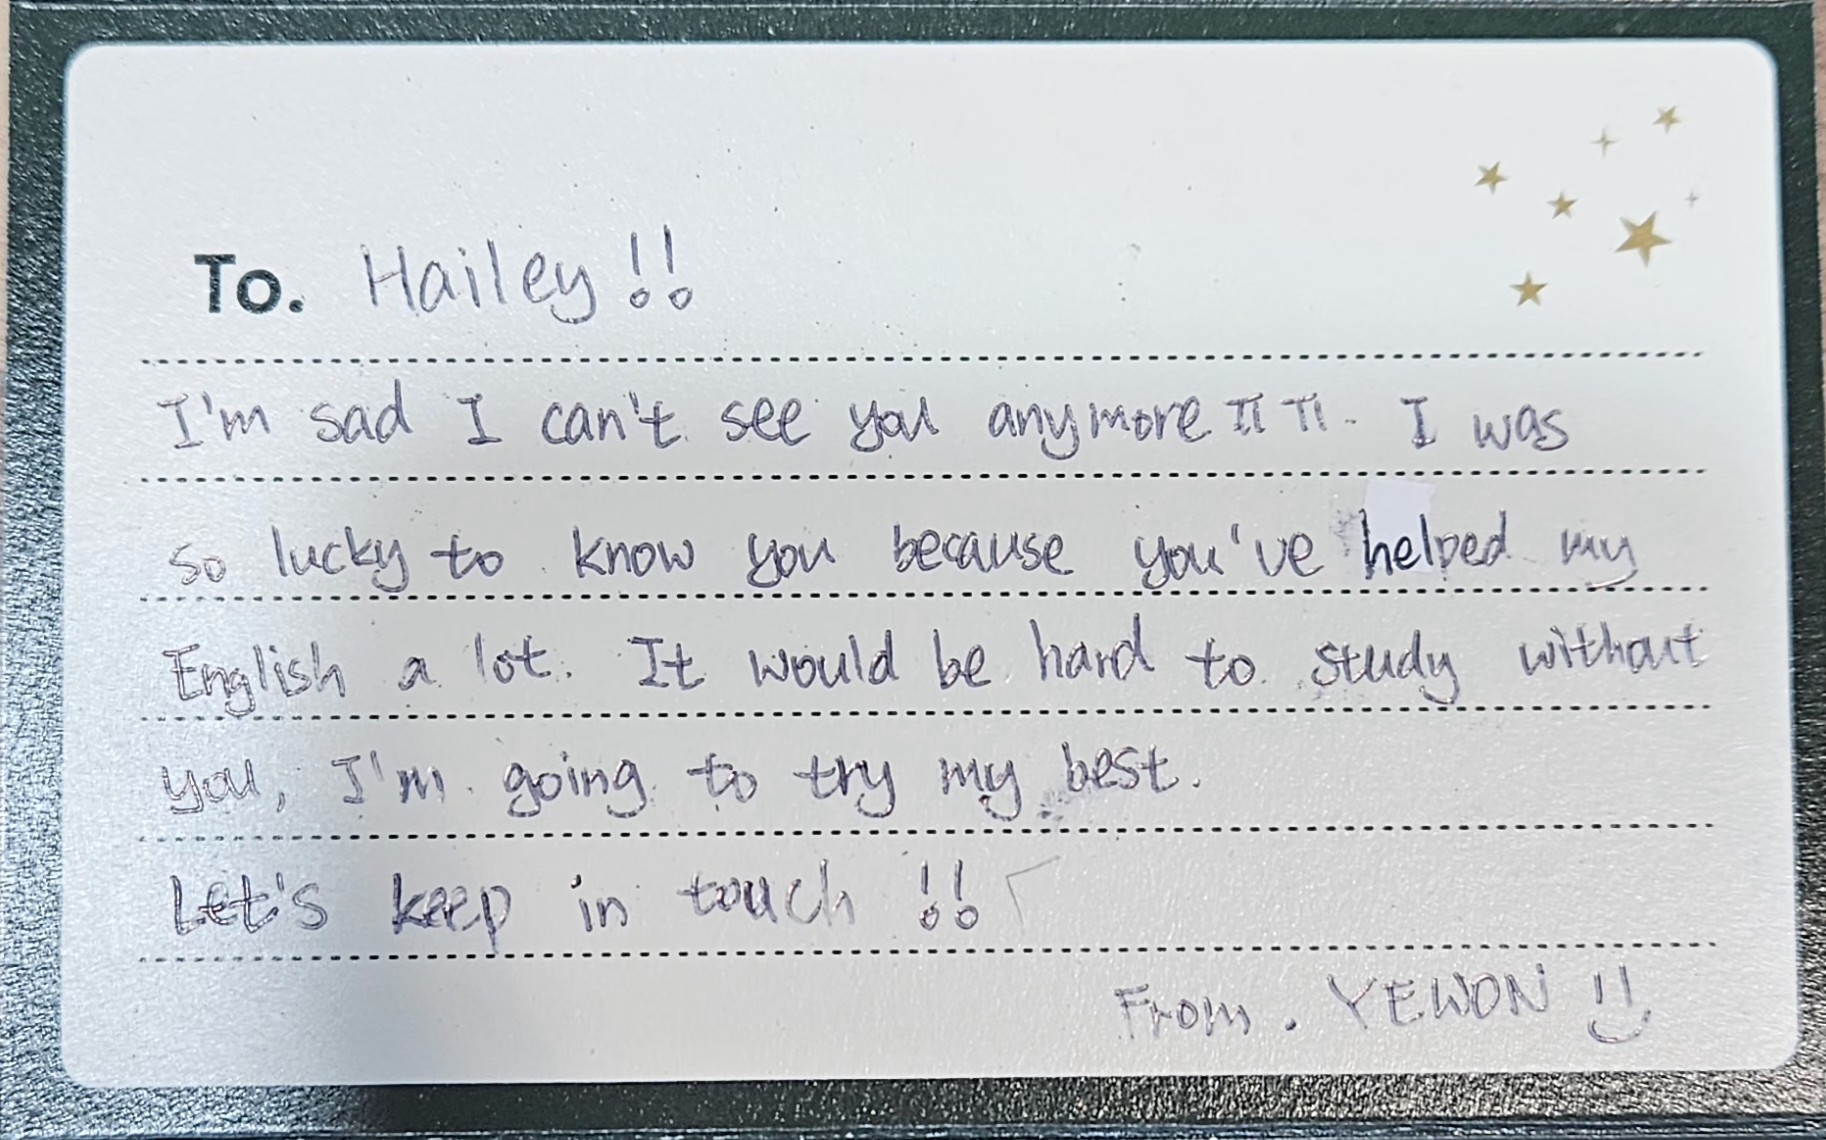 To. Hailey!!
I'm sad I can't see you anymore ㅠㅠ. I was
so lucky to know you because you've helped my
English a lot. It would be hard to study without
you, I'm going to try my best.
Let's keep in touch !!
From. YEWON